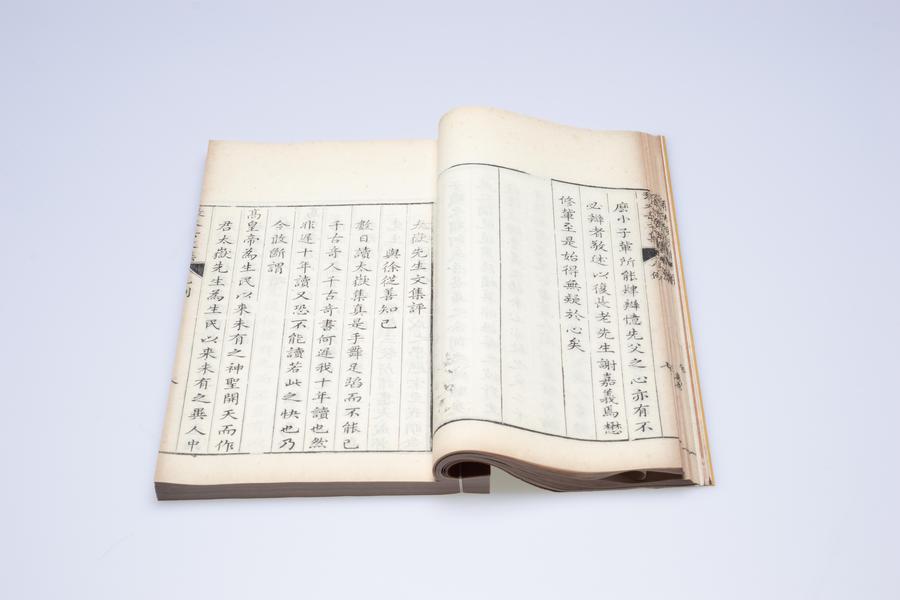 麽小子輩所能肆辯憶先父之心亦有不
必辯者敢述以復長老先生謝嘉義焉懋
修輩至是始得無疑於心矣
太嶽先生文集評
與徐從善知己
數日讀太嶽集真是手舞足蹈而不能已
千古奇人千古奇書何遲我十年讀也然
非遲十年讀又恐不能讀若此之快也乃
今敢斷謂
高皇帝為生民以來未有之神聖開天而作
君太嶽先生為生民以來未有之異人中